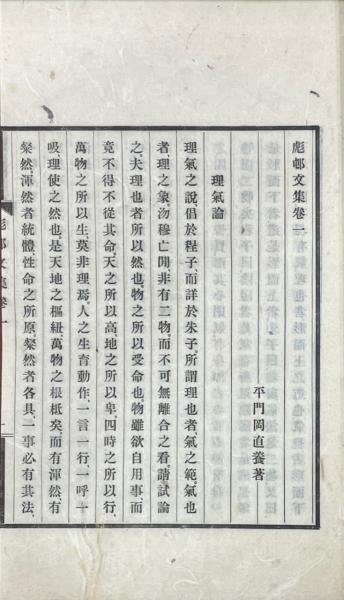 彪邨文集卷一
平門岡直養著
理氣論
理氣之說、倡於程子、而詳於朱子、所謂理也者氣之範、氣也
者理之象、沕穆亡閒、非有二物、而不可無離合之看、請試論
之、夫理也者所以然也、物之所以受命也、物雖欲自用事、而
竟不得不從其命、天之所以高、地之所以卑、四時之所以行、
萬物之所以生、莫非理焉、人之生育動作、一言一行、一呼一
吸、理使之然也、是天地之樞紐、萬物之根柢矣、而有渾然、有
粲然、渾然者統體性命之所原、粲然者各具、一事必有其法、
彪邨文集卷一